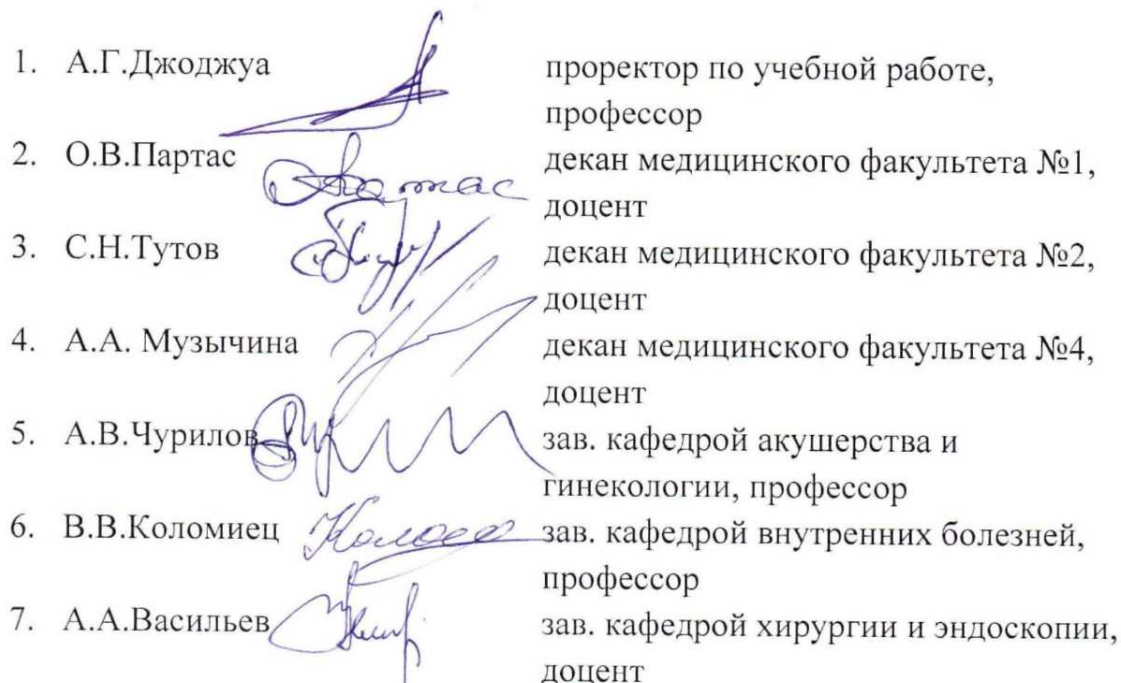 1. А.Г.Джоджуа проректор по учебной работе,
профессор
2. О.В.Партас декан медицинского факультета №1,
доцент
3. С.Н.Тутов декан медицинского факультета №2,
доцент
4. А.А. Музычина декан медицинского факультета №4,
доцент
5. А.В.Чурилов зав. кафедрой акушерства и
гинекологии, профессор
6. В.В.Коломиец зав. кафедрой внутренних болезней,
профессор
7. А.А.Васильев зав. кафедрой хирургии и эндоскопии,
доцент